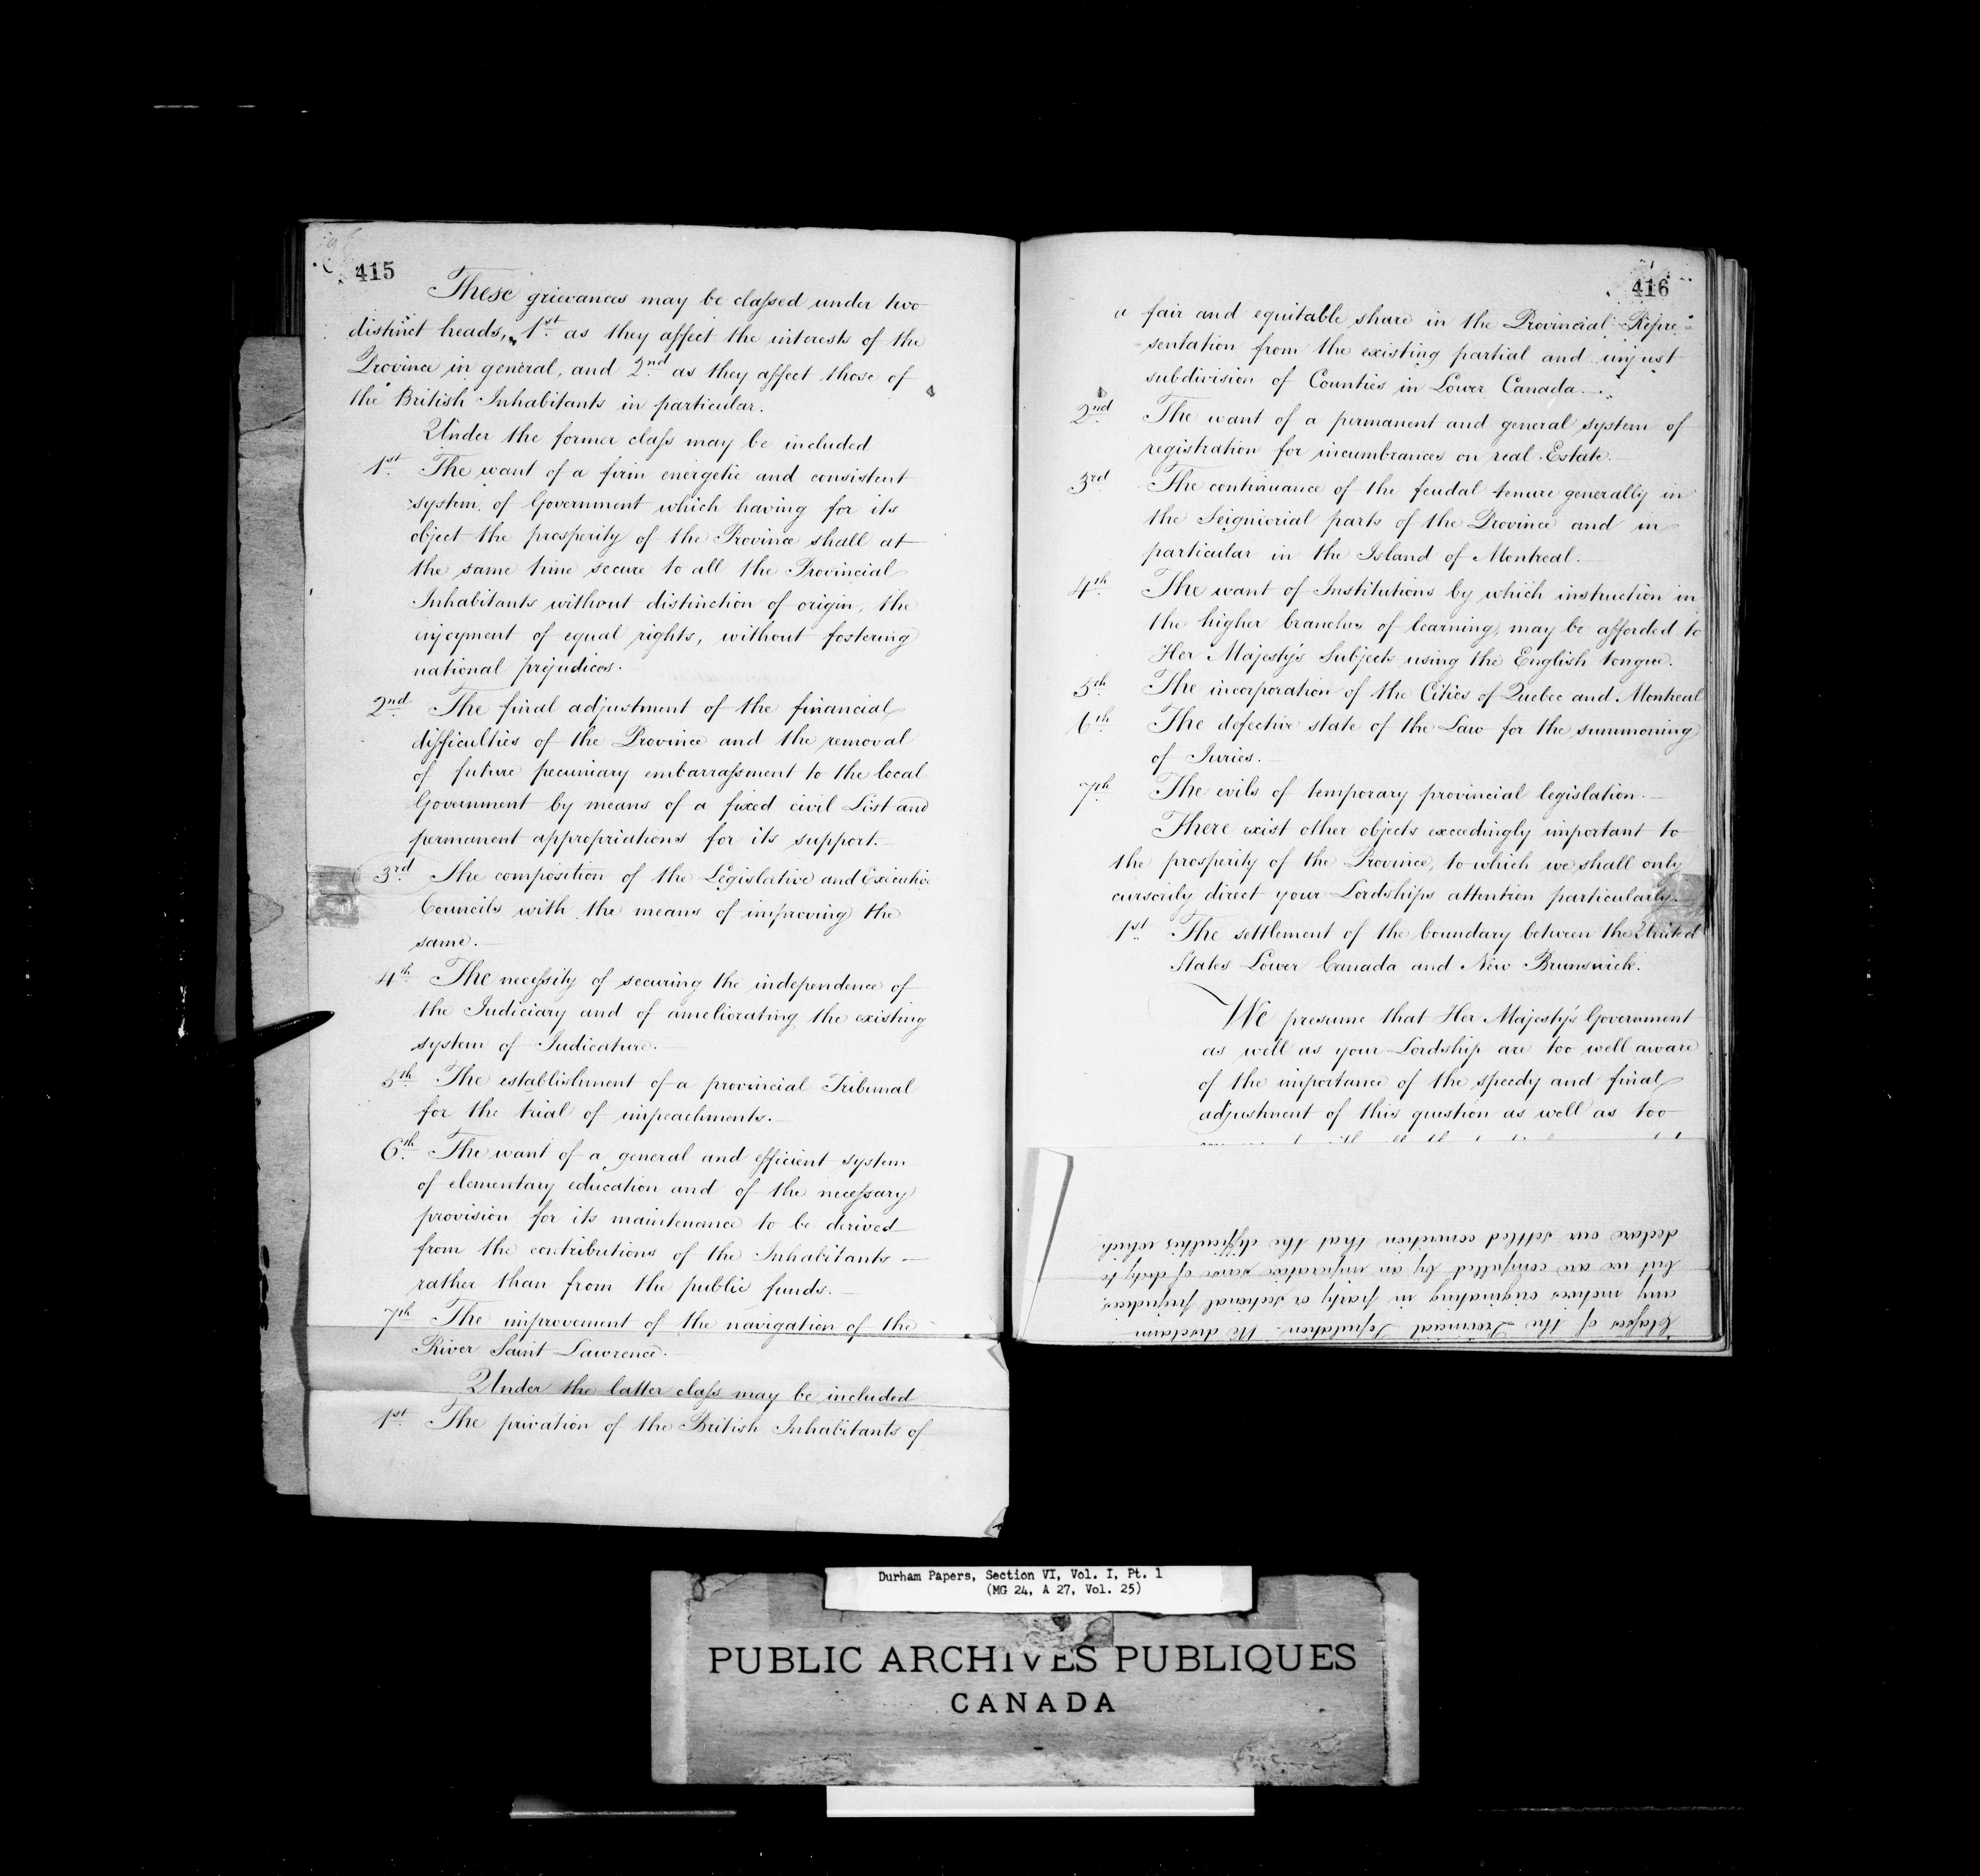 415
These grievances may be classed under two
distinct heads, 1st as they affect the interests of the
Province in general, and 2nd as they affect those of
the British Inhabitants in particular.
Under the former class may be included
1st The want of a firm energetic and consistent
system of Government which having for its
object the prosperity of the Province shall at
the same time secure to all the Provincial
Inhabitants without distinction of origin, the
enjoyment of equal rights, without fostering
national prejudices.
2nd The final adjustment of the financial
difficulties of the Province and the removal
of future pecuniary embarrassment to the local
Government by means of a fixed civil List and
permanent appropriations for its support.
3rd The composition of the Legislative and Executive
Councils with the means of improving the
same.
4th The necessity of securing the independence of
the Judiciary and of ameliorating the existing
system of Judicature.
5th The establishment of a provincial Tribunal
for the trial of impeachments.
6th The want of a general and efficient system
of elementary education and of the necessary
provision for its maintenance to be derived
from the contributions of the Inhabitants
rather than from the public funds.
7th The improvement of the navigation of the
River Saint Lawrence.
Under the latter class may be included
1st The privation of the British Inhabitants of
416
a fair and equitable share in the Provincial Repre-
sentation from the existing partial and unjust
subdivision of Counties in Lower Canada.
2nd The want of a permanent and general system of
registration for incumbrances on real Estate.
3rd The continuance of the feudal tenure generally in
the Seigniorial parts of the Province and in
particular in the Island of Montreal.
4th The want of Institutions by which instruction in
the higher branches of learning, may be afforded to
Her Majesty's Subjects using the English tongue.
5th The incorporation of the Cities of Quebec and Montreal
6th The defective state of the Law for the summoning
of Juries.
7th The evils of temporary provincial legislation.
There exist other objects exceedingly important to
the prosperity of the Province, to which we shall only
cursorily direct your Lordships attention particularly.
1st The settlement of the boundary between the United
States Lower Canada and New Brunswick.
We presume that Her Majesty's Government
as well as your Lordship are too well aware
of the importance of the speedy and final
adjustment of this question as well as too
Classes of the Provincial Population. We disclaim
any motives originating in party or sectional prejudices,
but we are compelled by an imperative sense of duty to
declare our settled conviction that the difficulties which
Durham Papers, Section VI, Vol. I, Pt. 1
(MG 24, A 27, Vol. 25)
PUBLIC ARCHIVES PUBLIQUES
CANADA